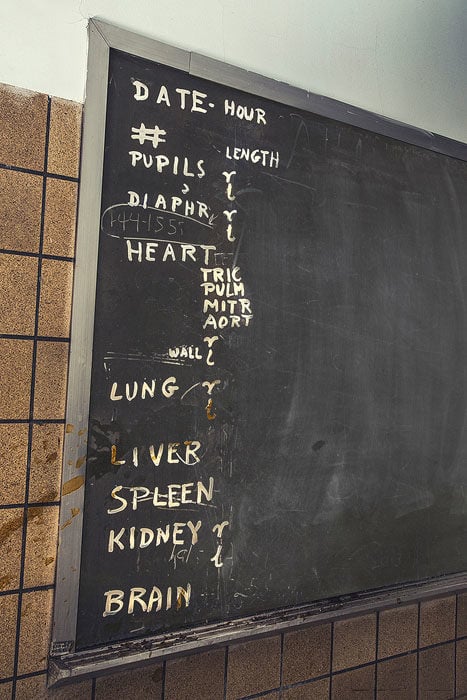 DATE- HOUR
#
LENGTH
PUPILS r
l
DIAPHR r
l
144-155
HEART
TRIC
PULM
MITR
AORT
WALL r
l
LUNG r
l
LIVER
SPLEEN
KIDNEY r
l
BRAIN